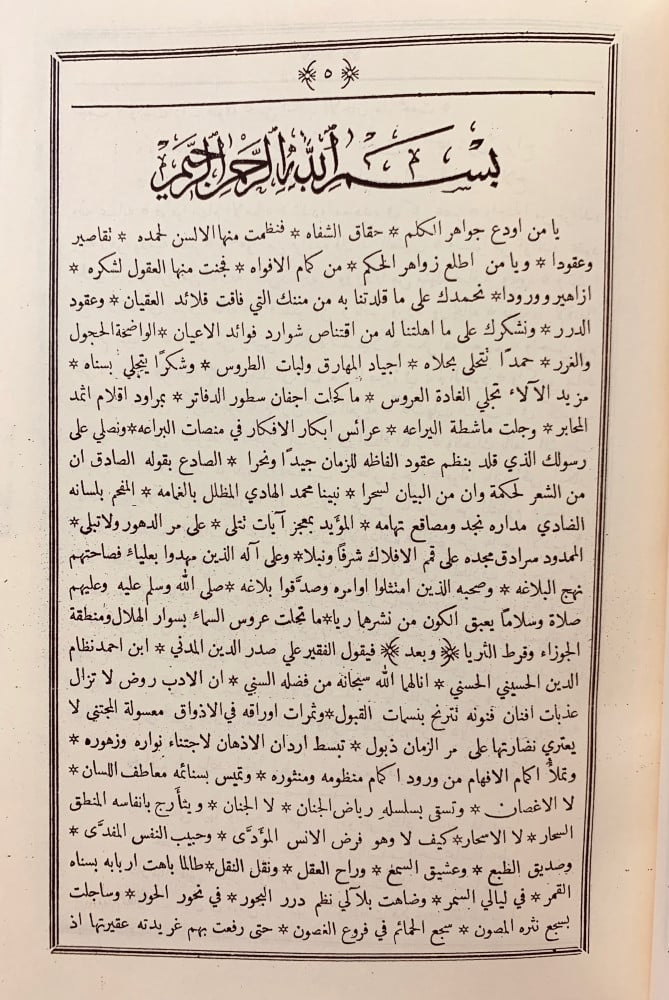 ٥
بسم الله الرحمن الرحيم
يا من اودع جواهر الكلم * حقاق الشفاه * فنظمت منها الالسن لحمده * تقاصير
وعقودا * ويا من اطلع زواهر الحكم * من كمام الافواه * فجنت منها العقول لشكره *
ازاهير وورودا* نحمدك على ما قلدتنا به من مننك التي فاقت قلائد العقيان * وعقود
الدرر * ونشكرك على ما اهلتنا له من اقتناص شوارد فوائد الاعيان *الواضحة الحجول
والغرر * حمدًا تتحلى بحلاه * اجياد المهارق ولبات الطروس * وشكرًا يتجلى بسناه *
مزيد الآلاء تجلي الغادة العروس * ما كحلت اجفان سطور الدفاتر * بمراود اقلام اثمد
المحابر * وجلت ماشطة اليراعه * عرائس ابكار الافكار في منصات البراعه*ونصلي على
رسولك الذي قلد بنظم عقود الفاظه للزمان جيدًا ونحرا * الصادع بقوله الصادق ان
من الشعر لحكمة وان من البيان لسحرا * نبينا محمد الهادي المظلل بالغمامه * المفحم بلسانه
الضادي مداره نجد ومصاقع تهامه * المؤيد بمعجز آيات تتلى * على مر الدهور ولا تبلى*
الممدود سرادق مجده على قمم الافلاك شرفًا ونبلا* وعلى آله الذين مهدوا بعلياء فصاحتهم
نهج البلاغه * وصحبه الذين امتثلوا اوامره وصدَّقوا بلاغه *صلى الله وسلم عليه وعليهم
صلاة وسلامًا يعبق الكون من نشرهما ريا*ما تحلت عروس السماء بسوار الهلال ومنطقة
الجوزاء وقرط الثريا ﴿ وبعد ﴾ فيقول الفقير علي صدر الدين المدني * ابن احمد نظام
الدين الحسيني الحسني * انالهما الله سبحانه من فضله السني * ان الادب روض لا تزال
عذبات افنان فنونه تترنح بنسمات القبول*وثمرات اوراقه في الاذواق معسولة المجتني لا
يعتري نضارتها على مر الزمان ذبول * تبسط اردان الاذهان لاجتناء نواره وزهوره *
وتملأُ اكمام الافهام من ورود اكمام منظومه ومنثوره * وتميس بسنائمه معاطف اللسان *
لا الاغصان * وتسقى بسلسله رياض الجنان * لا الجنان * ويتأرج بانفاسه المنطق
السحار* لا الاسحار* كيف لا وهو فرض الانس المؤدَّى * وحبيب النفس المفدَّى *
وصديق الطبع * وعشيق السمع * وراح العقل * ونقل النقل*طالما باهت اربابه بسناه
القمر * في ليالي السمر * وضاهت بلآلي نظم درر البحور * في نحور الحور * وساجلت
بسجع نثره المصون * سجع الحمائم في فروع الغصون * حتى رفعت بهم غريدته عقيرتها اذ